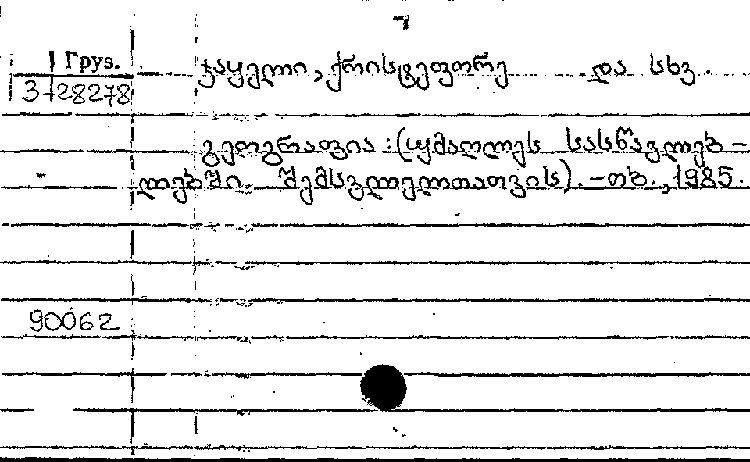 Груз.
ჯაყელი, ქრისტეფორე და სხვ.
3-128278
გეოგრაფია : (უმაღლეს სასწავლებ-
ლებში შემსვლელთათვის). – თბ., 1985.
90062